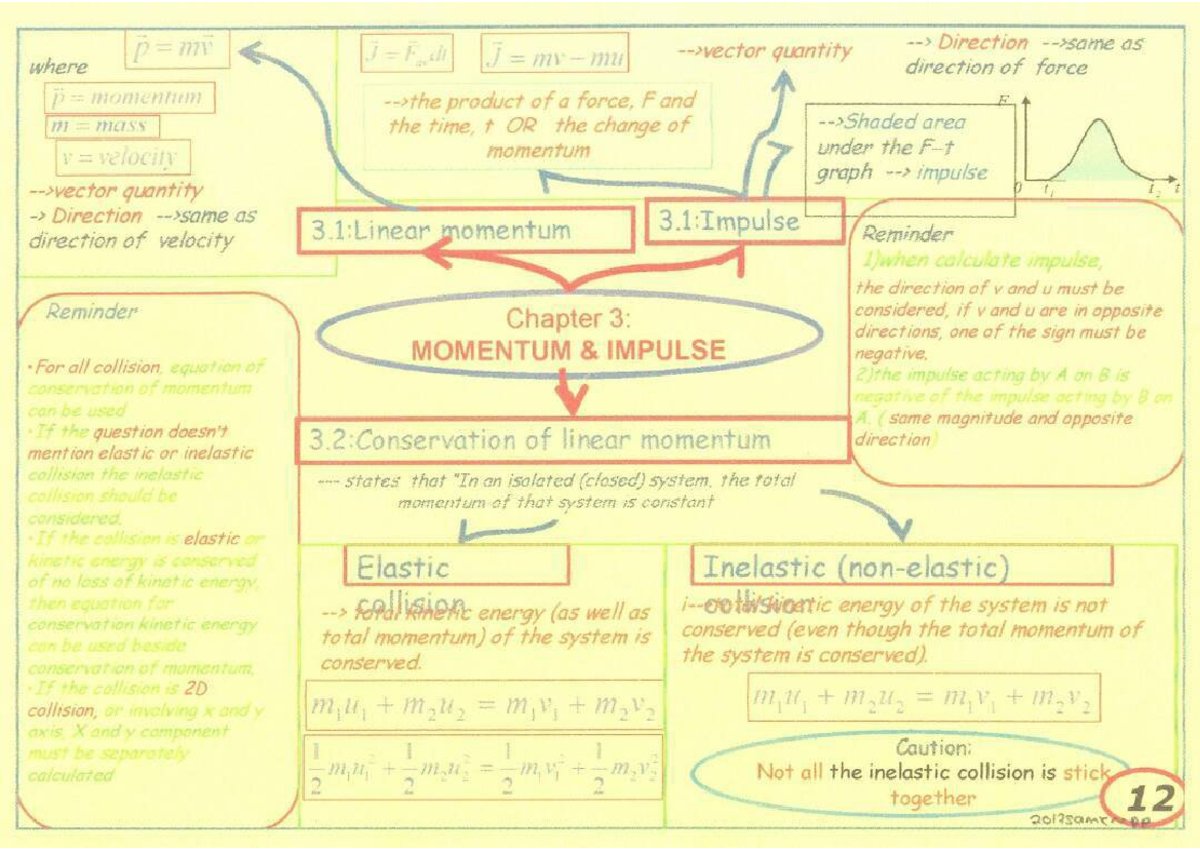 p⃗ = mv⃗
where
p⃗ = momentum
m = mass
v = velocity
-->vector quantity
-> Direction -->same as
direction of velocity
J⃗ = F⃗ₐᵥdt
J⃗ = mv − mu
-->the product of a force, F and
the time, t OR the change of
momentum
-->vector quantity
--> Direction -->same as
direction of force
-->Shaded area
under the F-t
graph --> impulse
F
0 t₁ t₂ t
3.1:Linear momentum
3.1:Impulse
Chapter 3:
MOMENTUM & IMPULSE
Reminder
1)when calculate impulse,
the direction of v and u must be
considered, if v and u are in opposite
directions, one of the sign must be
negative.
2)the impulse acting by A on B is
negative of the impulse acting by B on
A. ( same magnitude and opposite
direction)
Reminder
•For all collision, equation of
conservation of momentum
can be used
•If the question doesn't
mention elastic or inelastic
collision the inelastic
collision should be
considered.
•If the collision is elastic or
kinetic energy is conserved
of no loss of kinetic energy,
then equation for
conservation kinetic energy
can be used beside
conservation of momentum.
•If the collision is 2D
collision, or involving x and y
axis, X and y component
must be separately
calculated
3.2:Conservation of linear momentum
---- states that "In an isolated (closed) system, the total
momentum of that system is constant
Elastic
collision
--> total kinetic energy (as well as
total momentum) of the system is
conserved.
m₁u₁ + m₂u₂ = m₁v₁ + m₂v₂
1/2 m₁u₁² + 1/2 m₂u₂² = 1/2 m₁v₁² + 1/2 m₂v₂²
Inelastic (non-elastic)
collision
total kinetic energy of the system is not
conserved (even though the total momentum of
the system is conserved).
m₁u₁ + m₂u₂ = m₁v₁ + m₂v₂
Caution:
Not all the inelastic collision is stick
together
12